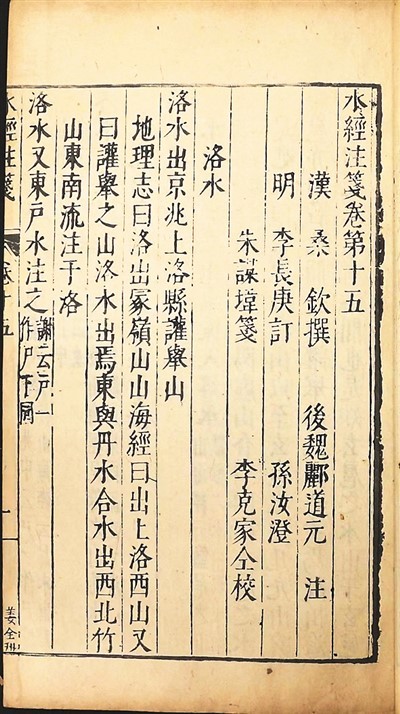 水經注箋卷第十五
漢 桑 欽撰 後魏酈道元 注
明 李長庚訂 孫汝澄
朱謀㙔箋 李克家仝校
洛水
洛水出京兆上洛縣讙舉山
地理志曰洛出冢嶺山山海經曰出上洛西山又
曰讙舉之山洛水出焉東與丹水合水出西北竹
山東南流注于洛
洛水又東戶水注之謝云戶一作尸下同
水經注箋 卷十五 一